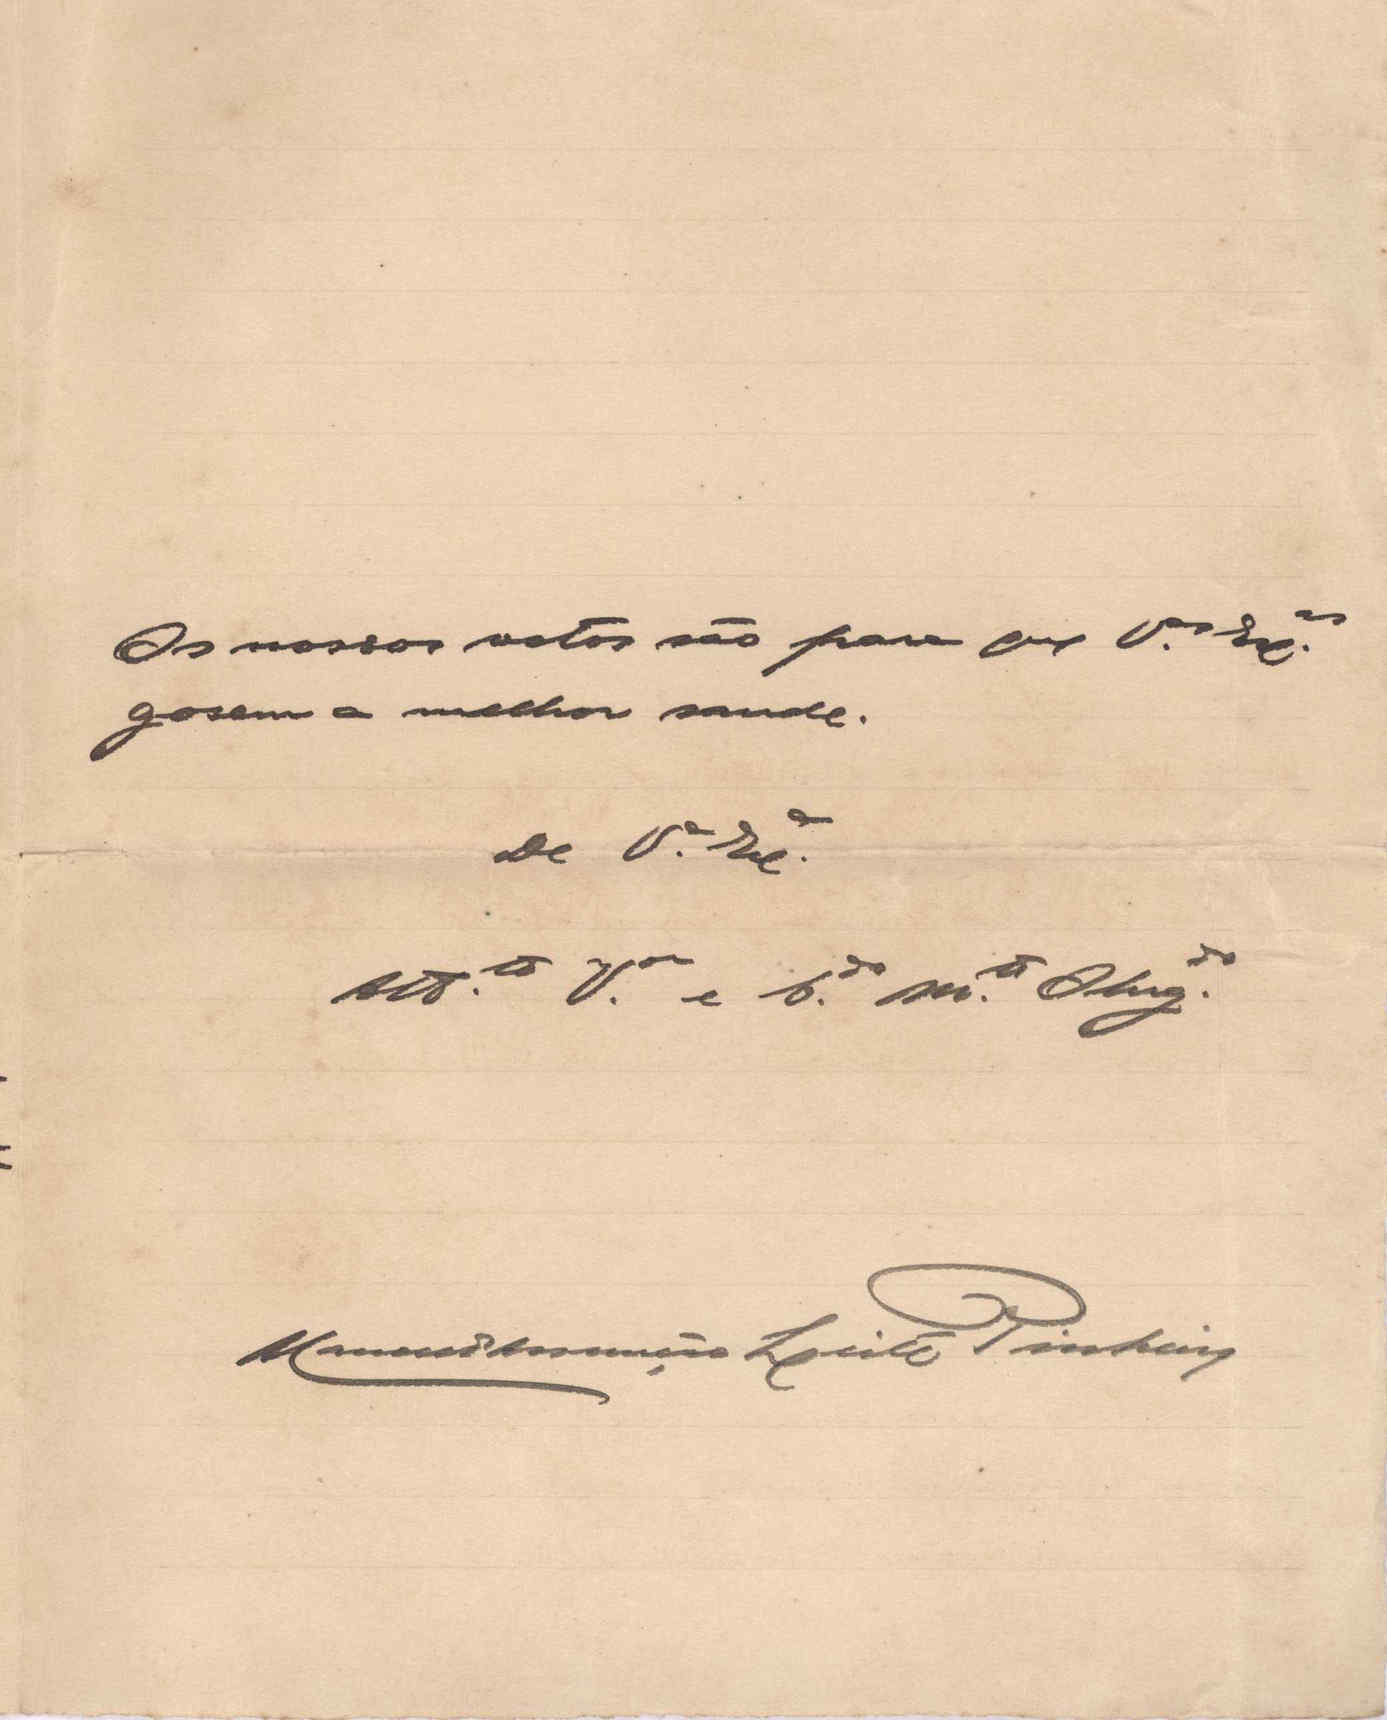 Os nossos votos são para que V.as Ex.as
gosem a melhor saude.
De V.a Ex.a
Att.to V.or e C.do M.to Obrg.do
Manoel d'Assumpção Leite Pinheiro